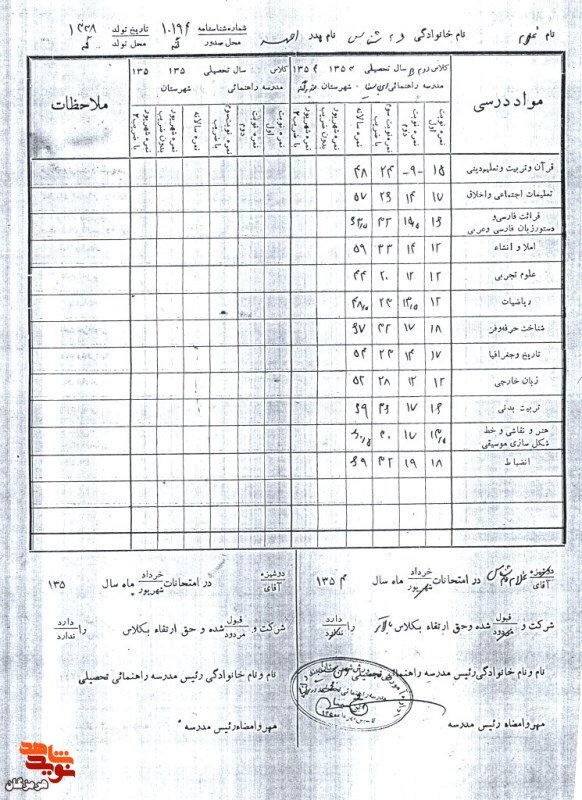 نام غلام نام خانوادگی نام پدر احمد شماره شناسنامه ۱۰۱۹۴ محل صدور تاریخ تولد ۱۳۳۸ محل تولد
مواد درسی
کلاس دوم سال تحصیلی ۱۳۵ ۱۳۵
مدرسه راهنمائی شهرستان
کلاس سال تحصیلی ۱۳۵ ۱۳۵
مدرسه راهنمائی شهرستان
ملاحظات
نمره نوبت اول نمره نوبت دوم نمره نوبت سوم با ضریب۲ نمره سالانه نمره شهریور بدون ضریب نمره شهریور با ضریب۴
نمره نوبت اول نمره نوبت دوم نمره نوبت سوم با ضریب نمره سالانه نمره شهریور بدون ضریب نمره شهریور با ضریب۴
قرآن و تربیت و تعلیم دینی ۱۵ -۹- ۲۴ ۴۸
تعلیمات اجتماعی و اخلاق ۱۷ ۱۴ ۲۶ ۵۷
قرائت فارسی و
دستور زبان فارسی و عربی ۱۶ ۳۲
املا و انشاء ۱۲ ۱۴ ۳۳ ۵۹
علوم تجربی ۱۲ ۱۲ ۲۰ ۴۴
ریاضیات ۱۲ ۱۳/۵ ۲۳ ۴۸/۵
شناخت حرفه و فن ۱۸ ۱۷ ۳۲ ۶۷
تاریخ و جغرافیا ۱۷ ۱۴ ۲۳ ۵۴
زبان خارجی ۱۲ ۱۲ ۲۸ ۵۲
تربیت بدنی ۱۶ ۱۷ ۳۶ ۶۹
هنر و نقاشی و خط
شکل سازی موسیقی ۱۳/۵ ۱۷ ۳۰ ۶۰/۵
انضباط ۱۸ ۱۹ ۳۲ ۶۹
دوشیزه آقای غلام در امتحانات خرداد شهریور ماه سال ۱۳۵
شرکت و قبول مردود شده و حق ارتقاء بکلاس بالاتر دارد ندارد را
نام و نام خانوادگی رئیس مدرسه راهنمائی تحصیلی
مهر و امضاء رئیس مدرسه
دوشیزه آقای در امتحانات خرداد شهریور ماه سال ۱۳۵
شرکت و قبول مردود شده و حق ارتقاء بکلاس را دارد ندارد
نام و نام خانوادگی رئیس مدرسه راهنمائی تحصیلی
مهر و امضاء رئیس مدرسه
نوید شاهد
هرمزگان